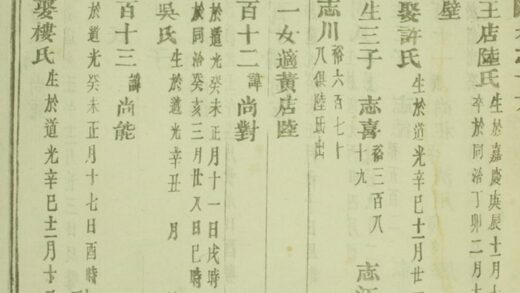 王店陸氏 生於嘉慶庚辰十一月十
卒於同治丁卯二月十
壁
娶許氏 生於道光辛巳十一月廿
生三子 志喜 裕三百八
十九
志川 裕六百七十
八俱陸氏出
一女適黃店陸
百十二 諱 尚對
於道光癸未正月十一日戌時
於同治癸亥三月廿八日巳時
吳氏 生於道光辛丑 月
百十三 諱 尚能
於道光癸未正月十七日酉時
娶樓氏 生於道光辛巳十二月十